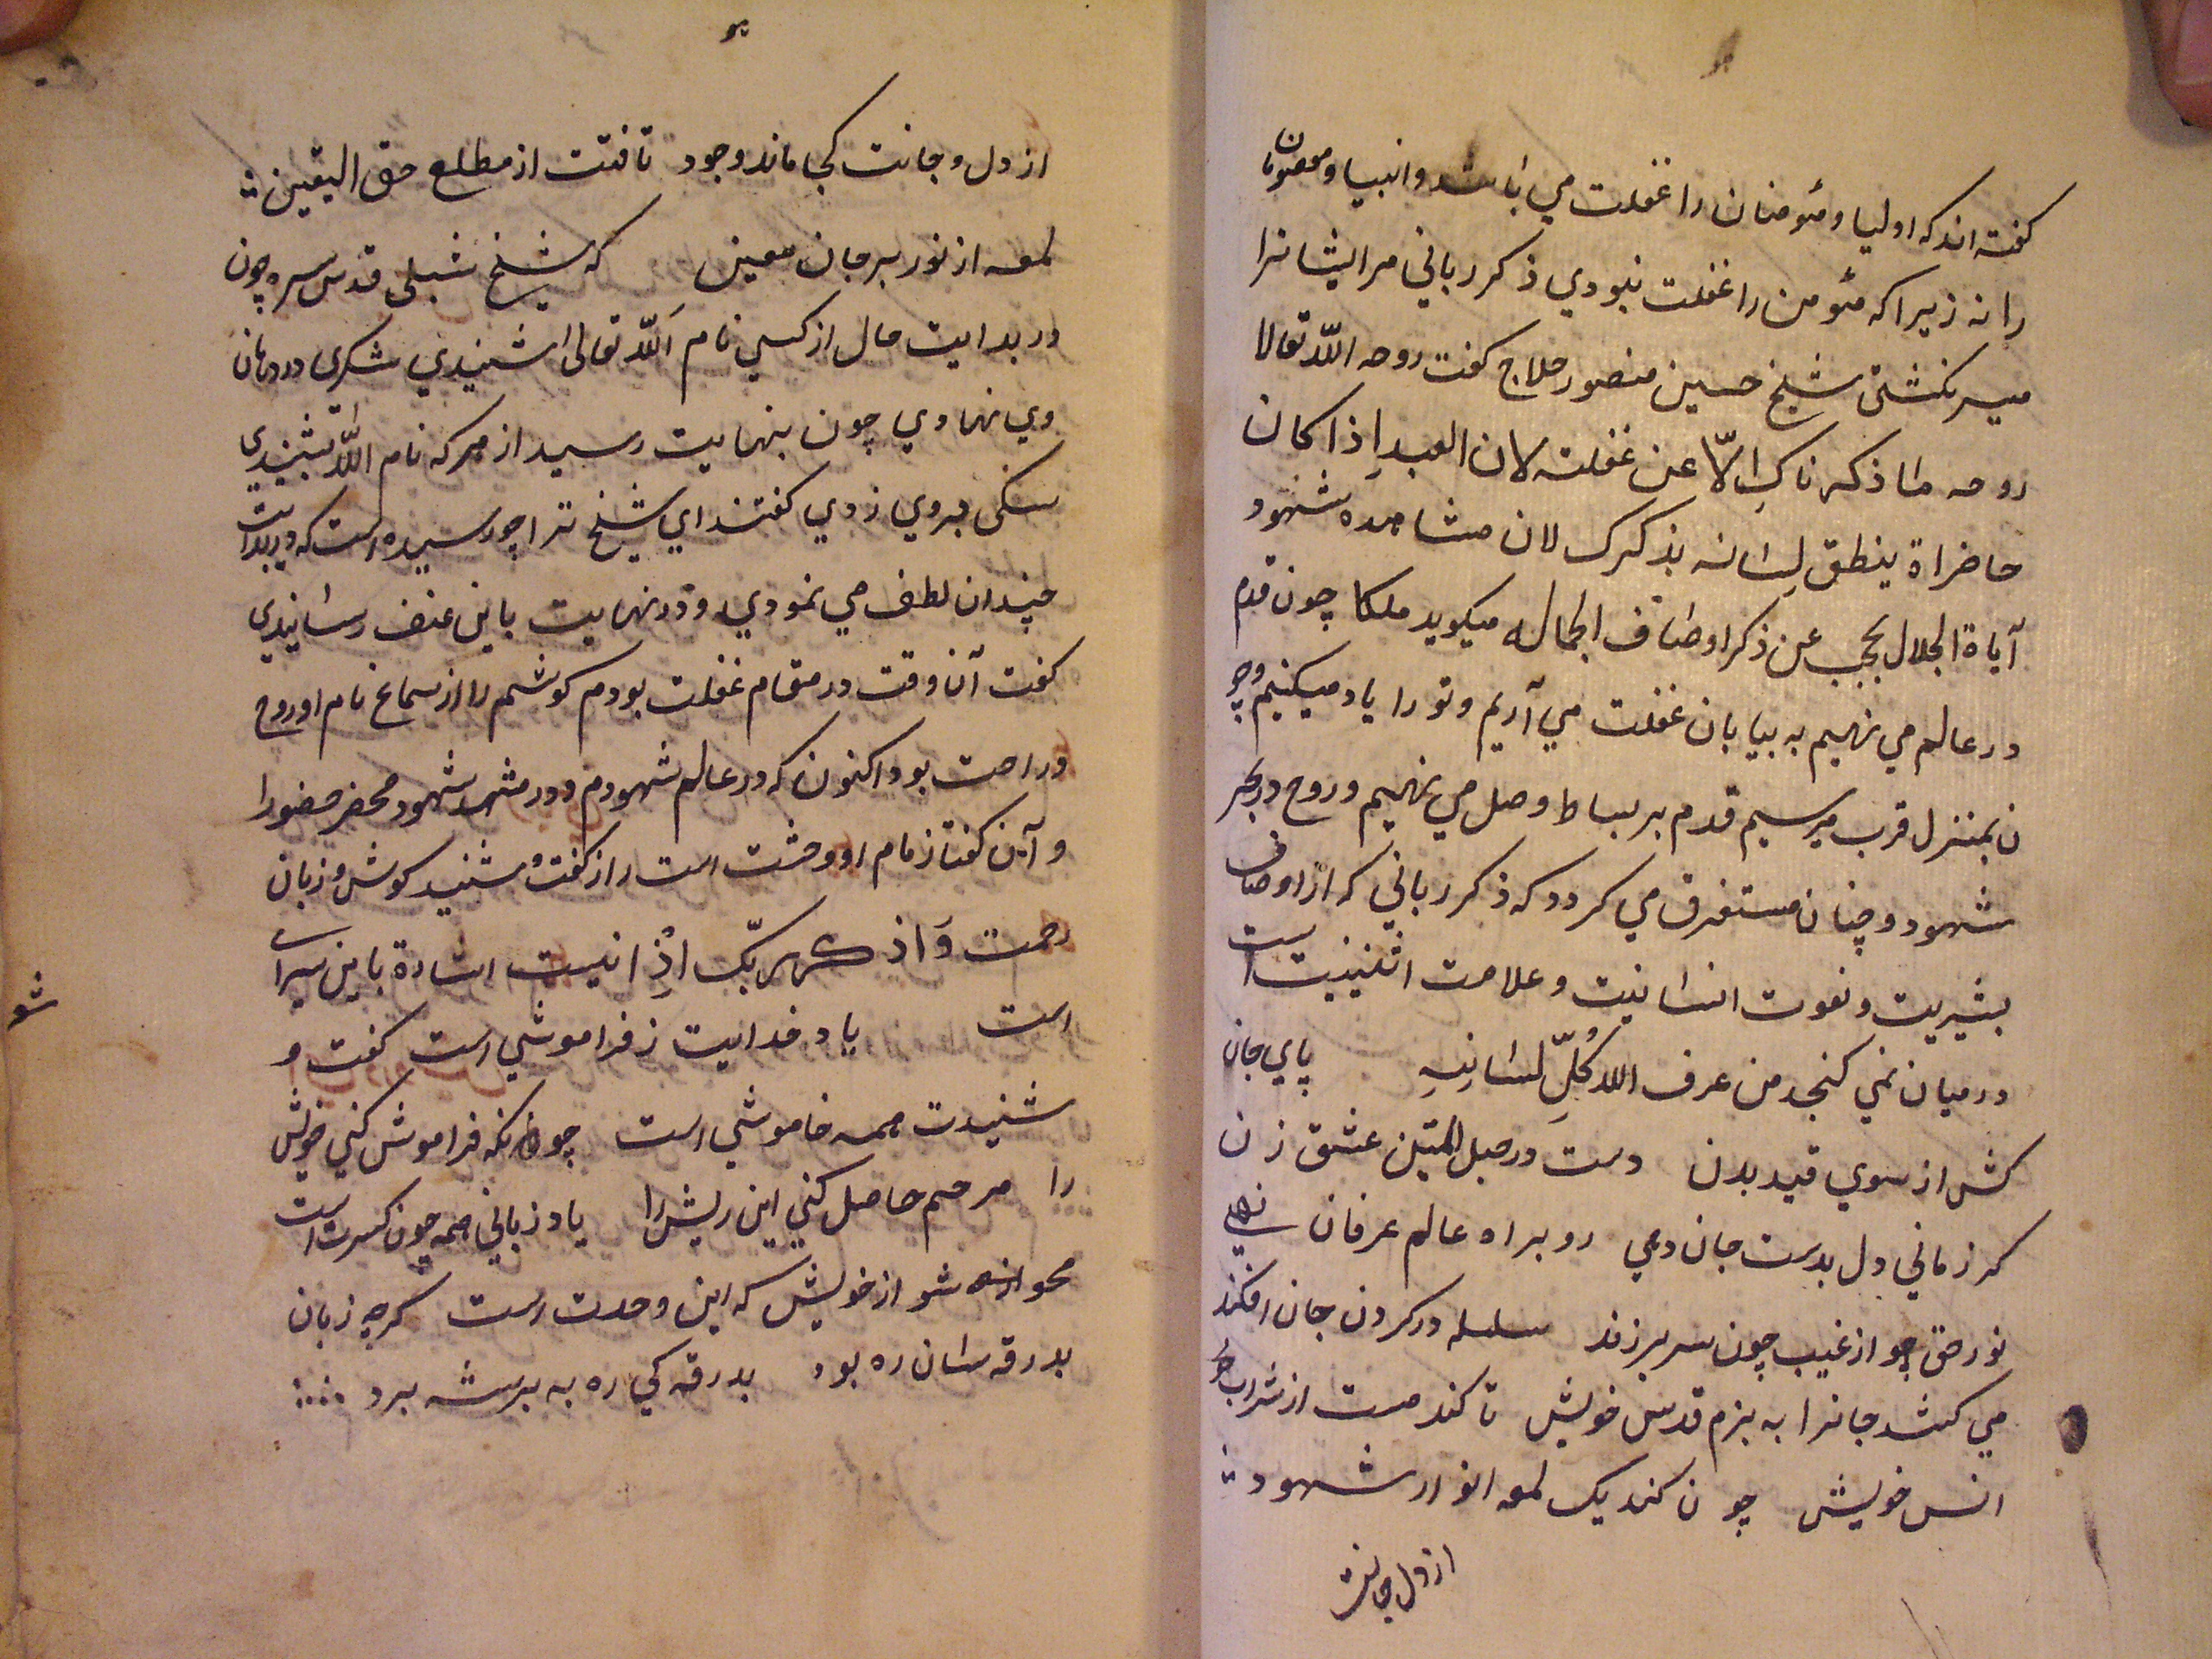 گفته اند که اولیا و مئومنان را غفلت می باشد و انبیا و معصومان
را نه زیرا که مئومن را غفلت نبودی ذکر ربانی مر ایشانرا
میسر نکشتی شیخ حسین منصور حلاج کفت روحه اللّه تعالا
روحه ما ذکرناکِ الّا عن غفلته لان العبد اِذا کان
حاضراة ینطق لِسانه بذکرک لان مشاهده شهود
آیاة الجلال یحجب عن ذکر اوصاف الجماله میکوید ملکا چون قدم
در عالم می نهیم به بیابان غفلت می آریم و تو را یاد میکنیم و چو
ن بمنزل قرب میرسیم قدم بر بساط وصل می نهیم و روح در بحر
شهود و چنان مستغرق می کردد که ذکر ربانی که از اوصاف
بشریت و نعوت انسانیت و علامت اثنینیت است
در میان نمی کنجد من عرف اللّه کُلّ لسانِهِ پای جان
کش از سوی قید بدن دست در حبل المتین عشق زن
کر زمانی دل بدست جان دهی رو براه عالم عرفان نهی
نور حق چو از غیب چون سر برزند سلسله در کردن جان افکند
می کشد جانرا به بزم قدس خویش تا کند مست از شراب
انس خویش چون کند یک لمعه انوار شهود
از دل و جانت
از دل و جانت کجا ماند وجود تافتت از مطلع حق الیقین
لمعه از نور بر جان معین که شیخ شبلی قدس سره چون
در بدایت حال از کسی نام اَللّه تعالی شنیدی شکری در دهان
وی نهادی چون بنهایت رسید از هر که نام اللّه شنیدی
سنکی بروی زدی کفتند ای شیخ ترا چه رسیده است که در بدایت
چندان لطف می نمودی و در نهایت باین عنف رسانیدی
کفت آن وقت در مقام غفلت بودم کوشم را از سماع نام او روح
و راحت بود اکنون که در عالم شهودم و در مشهد شهود محضر حضورا
و آین کفتار نام او وحشت است را از کفت و شنید کوش و زبان
رحمت وَاذکر ربّک اذِا نسیت اشارة باین سیرا
است یاد خدایت ز فراموشی است کفت و
شنیدت همه خاموشی است چونکه فراموش کنی خویش
را مرحم حاصل کنی این ریش را یاد زبانی همه چون کسرت است
محو شو از خویش که این وحدت است کرچه زبان
بدرقه سان ره بود بدرقه کی ره به بر شه برد
شو